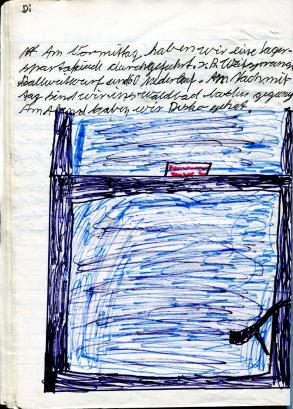 Di
Am Vormittag haben wir eine Lager-
spartakiade durchgeführt. z. B. Weitsprung
Ballweitwurf und 60
Am Nachmit
tag sind wir ins Waldbad
Am Abend haben wir Disko gehabt